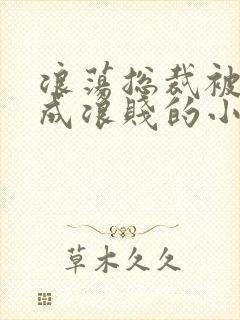 浪蕩総裁被
成浪賤的小
草木久久